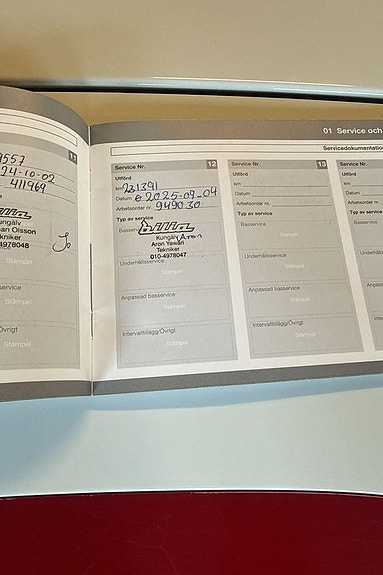 01 Service och
Servicedokumentation
11
9557
24-10-02
411969
Bilia
Kungälv
Olsson
Tekniker
4978048
Stämpel
Stämpel
Övrigt
Stämpel
Service Nr. 12
Utförd
km 231391
Datum 2025-09-04
Arbetsorder nr. 949030
Typ av service
Bilia
Kungälv Aron
Aron Yawari
Tekniker
010-4978047
Underhållsservice
Stämpel
Anpassad basservice
Stämpel
Intervalltillägg/Övrigt
Stämpel
Service Nr. 13
Utförd
km
Datum
Arbetsorder nr.
Typ av service
Basservice
Stämpel
Underhållsservice
Stämpel
Anpassad basservice
Stämpel
Intervalltillägg/Övrigt
Stämpel
Service Nr.
Utförd
km
Datum
Arbetsorder
Typ av service
Basservice
Underhållsser
Anpassad ba
Intervalltilläg